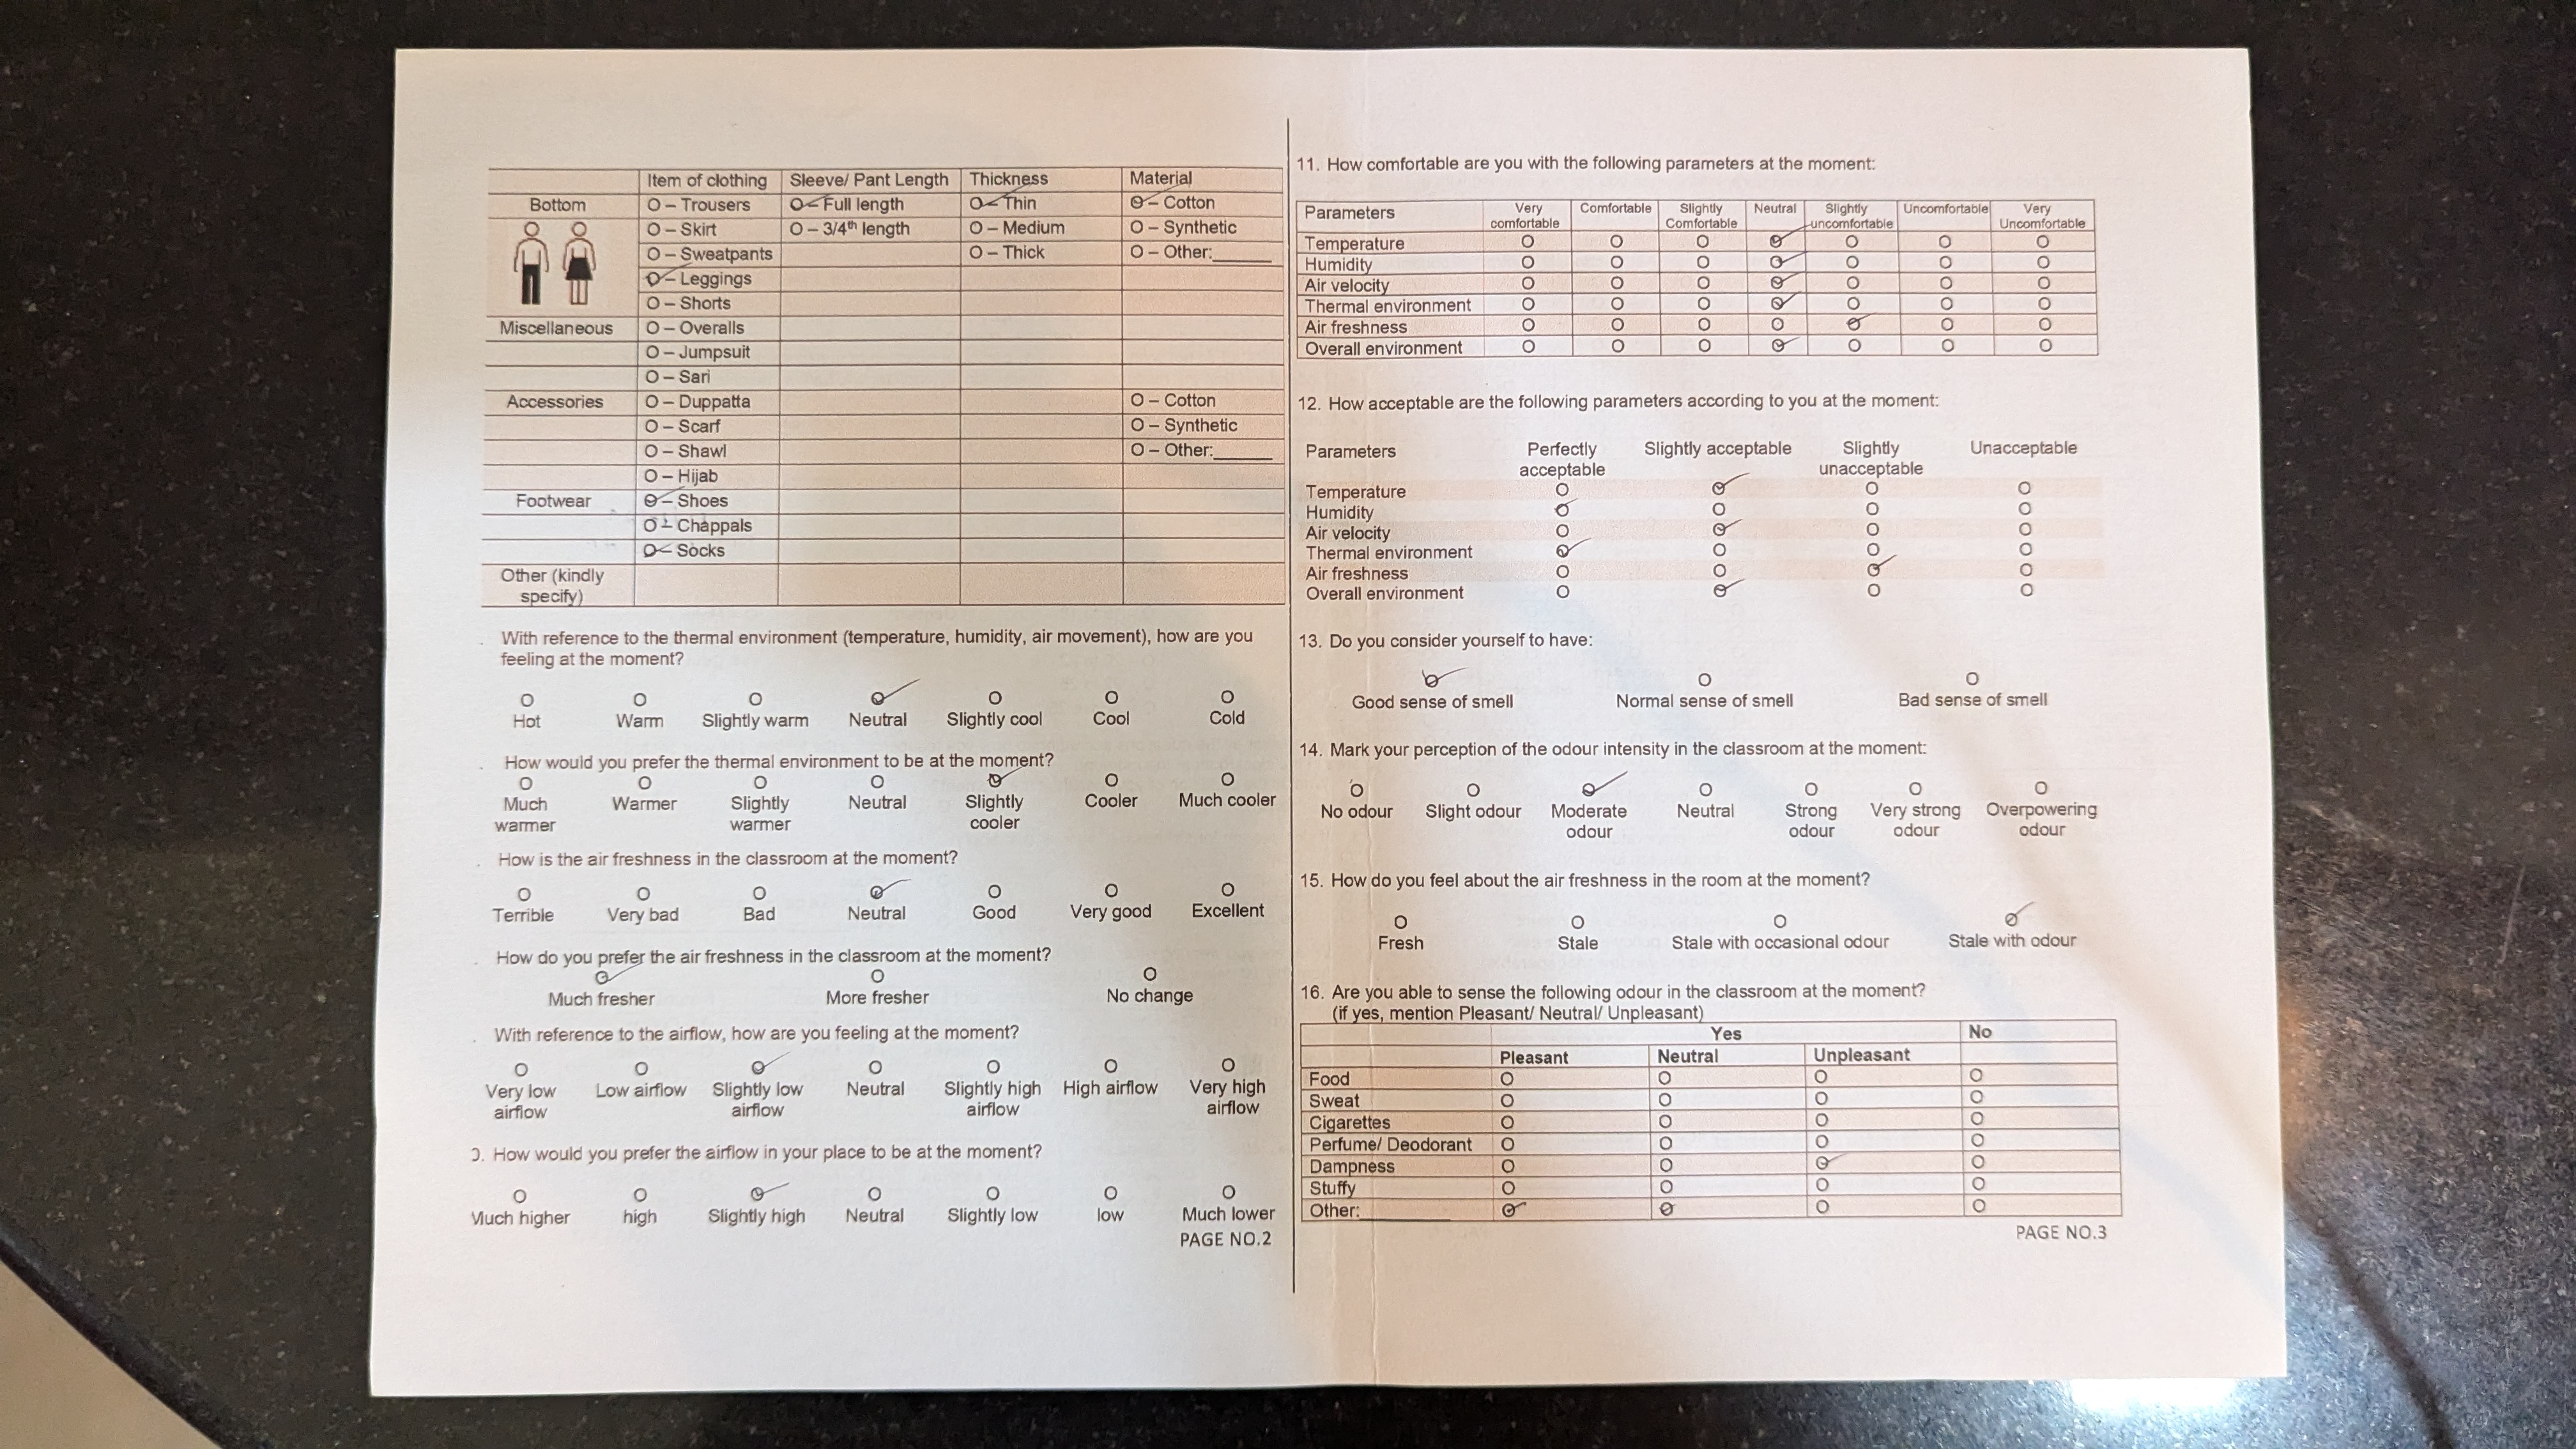 Item of clothing Sleeve/ Pant Length Thickness Material
Bottom O – Trousers O – Full length O – Thin O – Cotton
O – Skirt O – 3/4th length O – Medium O – Synthetic
O – Sweatpants O – Thick O – Other:______
O – Leggings
O – Shorts
Miscellaneous O – Overalls
O – Jumpsuit
O – Sari
Accessories O – Duppatta O – Cotton
O – Scarf O – Synthetic
O – Shawl O – Other:______
O – Hijab
Footwear O – Shoes
O – Chappals
O – Socks
Other (kindly
specify)
With reference to the thermal environment (temperature, humidity, air movement), how are you
feeling at the moment?
O O O O O O O
Hot Warm Slightly warm Neutral Slightly cool Cool Cold
How would you prefer the thermal environment to be at the moment?
O O O O O O O
Much Warmer Slightly Neutral Slightly Cooler Much cooler
warmer warmer cooler
How is the air freshness in the classroom at the moment?
O O O O O O O
Terrible Very bad Bad Neutral Good Very good Excellent
How do you prefer the air freshness in the classroom at the moment?
O O O
Much fresher More fresher No change
With reference to the airflow, how are you feeling at the moment?
O O O O O O O
Very low Low airflow Slightly low Neutral Slightly high High airflow Very high
airflow airflow airflow airflow
0. How would you prefer the airflow in your place to be at the moment?
O O O O O O O
Much higher high Slightly high Neutral Slightly low low Much lower
PAGE NO.2
11. How comfortable are you with the following parameters at the moment:
Parameters Very Comfortable Slightly Neutral Slightly Uncomfortable Very
comfortable Comfortable uncomfortable Uncomfortable
Temperature O O O O O O O
Humidity O O O O O O O
Air velocity O O O O O O O
Thermal environment O O O O O O O
Air freshness O O O O O O O
Overall environment O O O O O O O
12. How acceptable are the following parameters according to you at the moment:
Parameters Perfectly Slightly acceptable Slightly Unacceptable
acceptable unacceptable
Temperature O O O O
Humidity O O O O
Air velocity O O O O
Thermal environment O O O O
Air freshness O O O O
Overall environment O O O O
13. Do you consider yourself to have:
O O O
Good sense of smell Normal sense of smell Bad sense of smell
14. Mark your perception of the odour intensity in the classroom at the moment:
O O O O O O O
No odour Slight odour Moderate Neutral Strong Very strong Overpowering
odour odour odour odour
15. How do you feel about the air freshness in the room at the moment?
O O O O
Fresh Stale Stale with occasional odour Stale with odour
16. Are you able to sense the following odour in the classroom at the moment?
(if yes, mention Pleasant/ Neutral/ Unpleasant)
Yes No
Pleasant Neutral Unpleasant
Food O O O O
Sweat O O O O
Cigarettes O O O O
Perfume/ Deodorant O O O O
Dampness O O O O
Stuffy O O O O
Other:__________ O O O O
PAGE NO.3